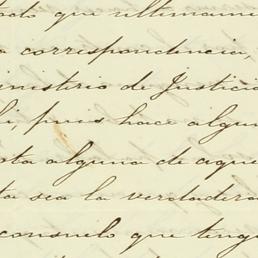 todo que ultimamen
a correspondencia,
ministerio de Justicia
li, pues hace algun
sta alguna de aque
ta sea la verdadera
consuelo que teng